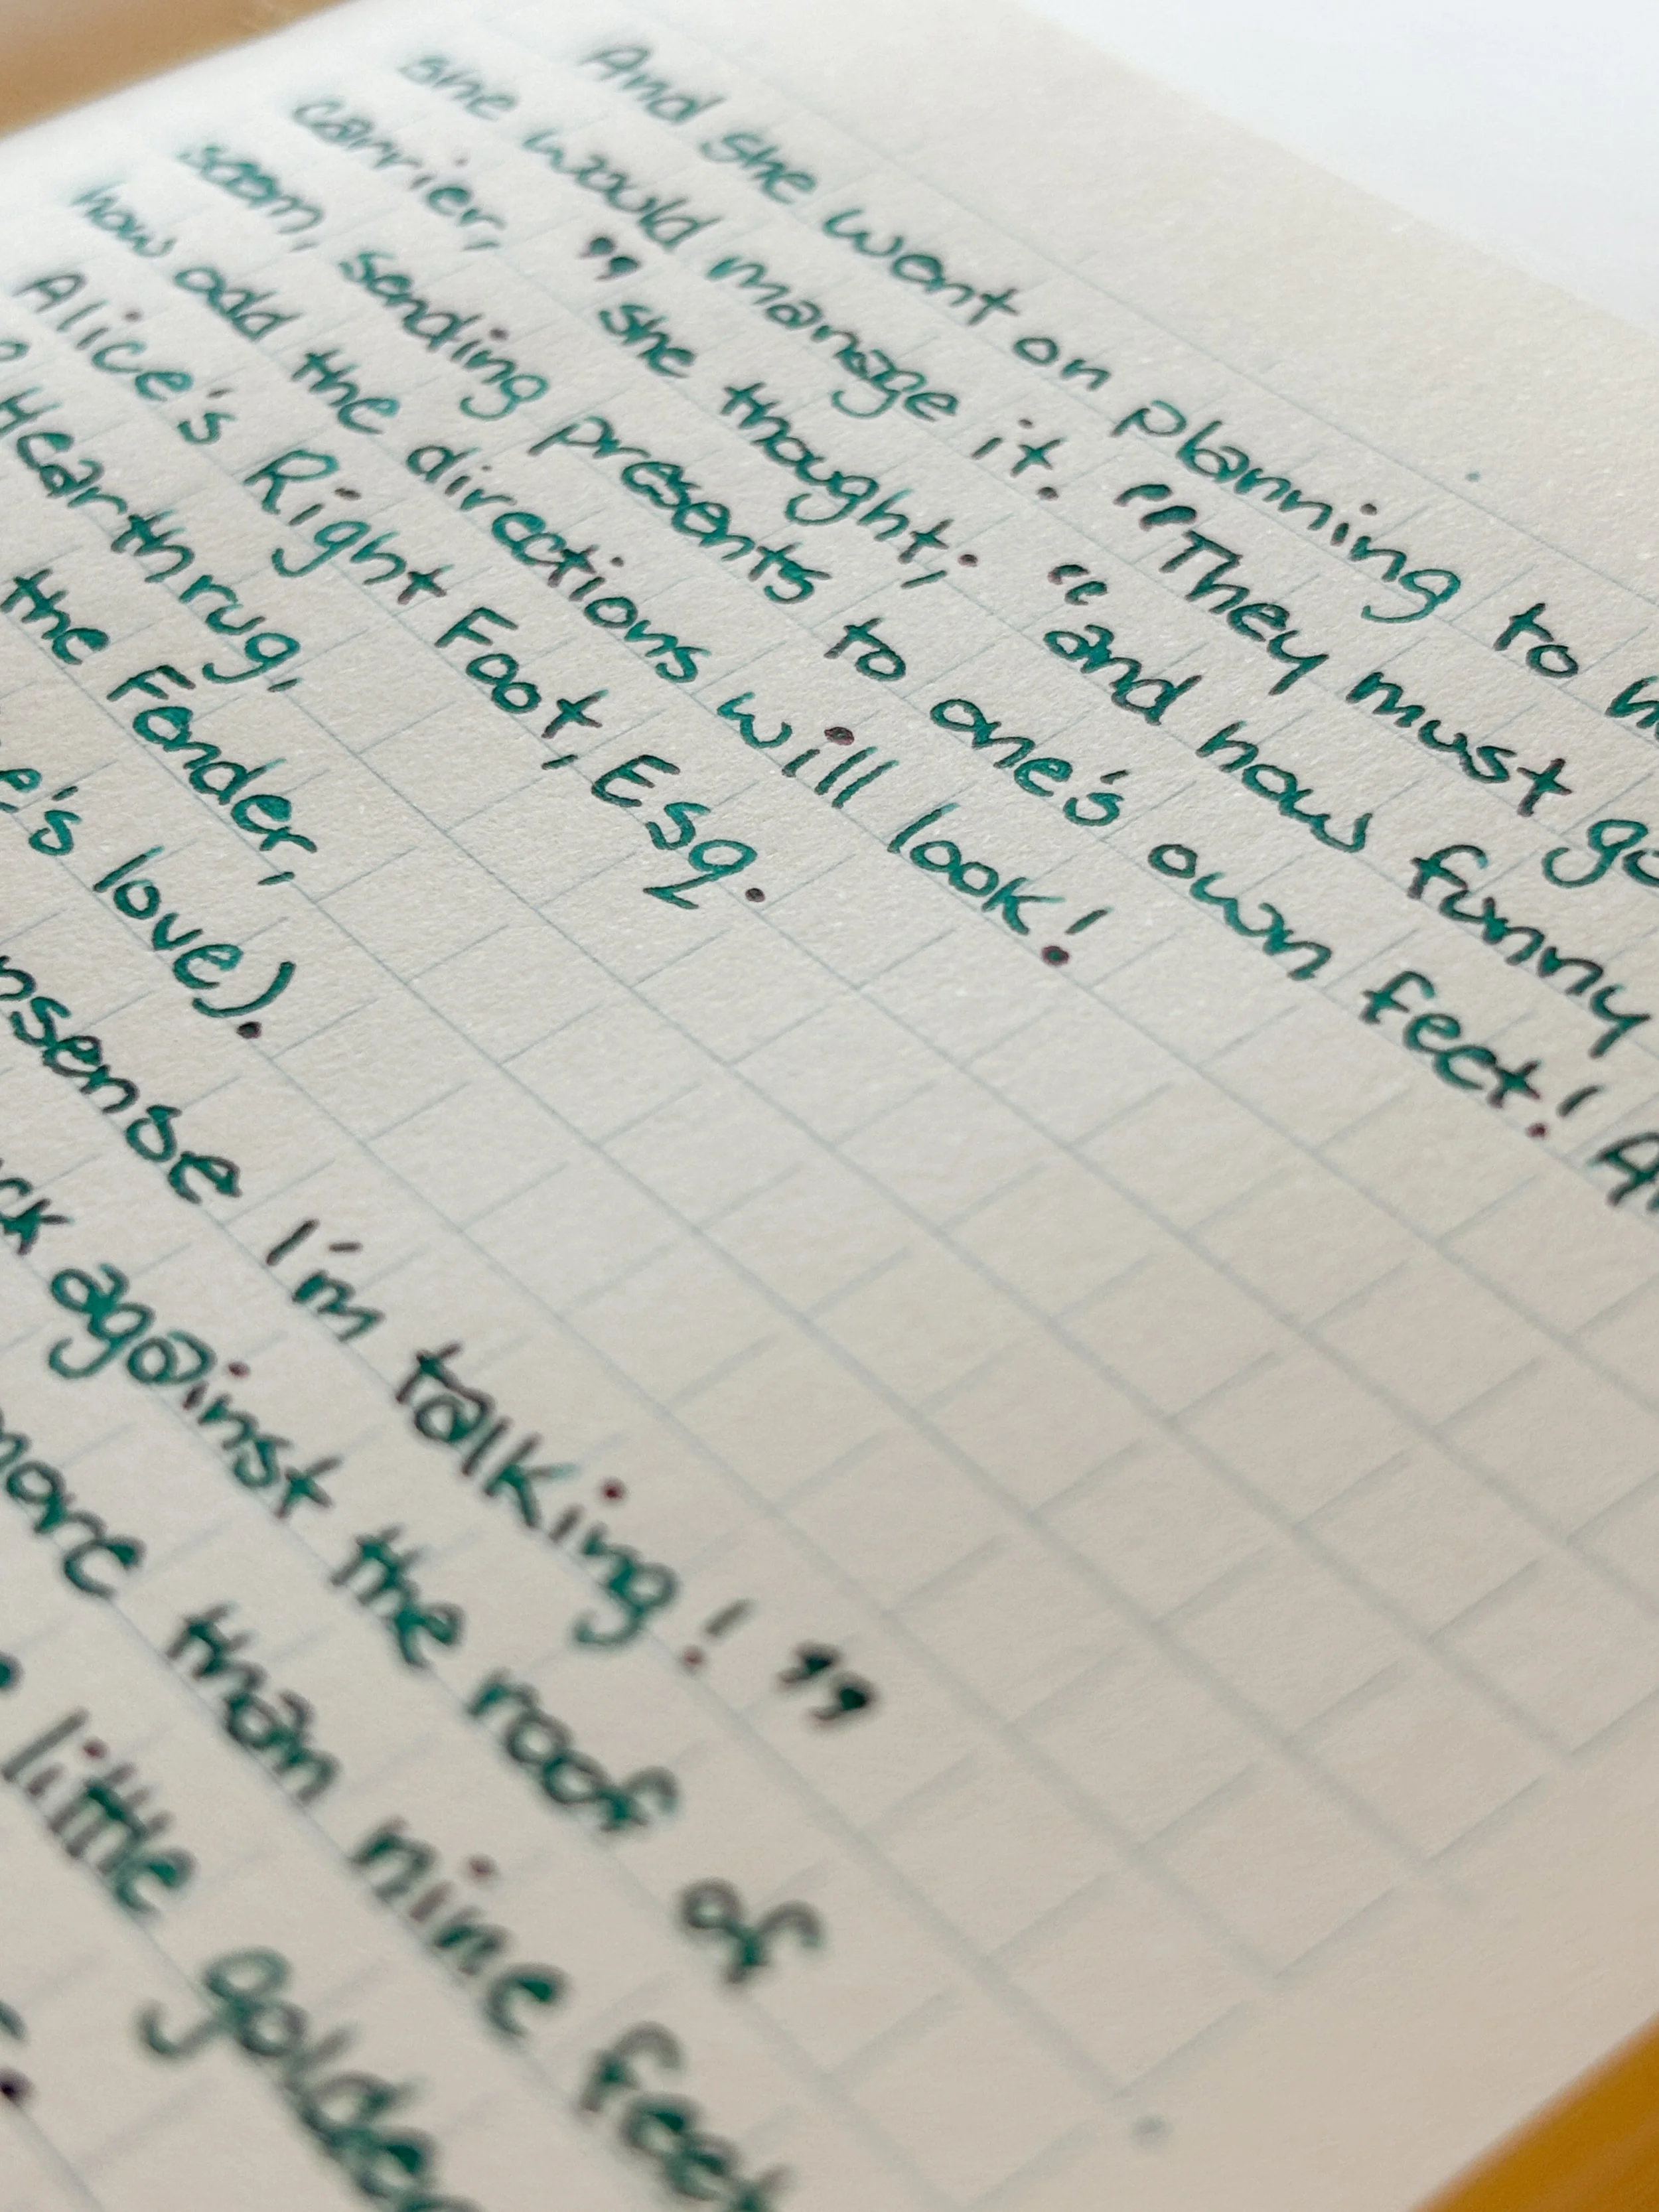 And she went on planning to
she would manage it. “They must go
carrier,” she thought; “and how funny
seem, sending presents to one's own feet!
how odd the directions will look!
Alice's Right Foot, Esq.
Hearthrug,
the Fender,
love).
I'm talking!”
against the roof of
more than nine feet
little golden